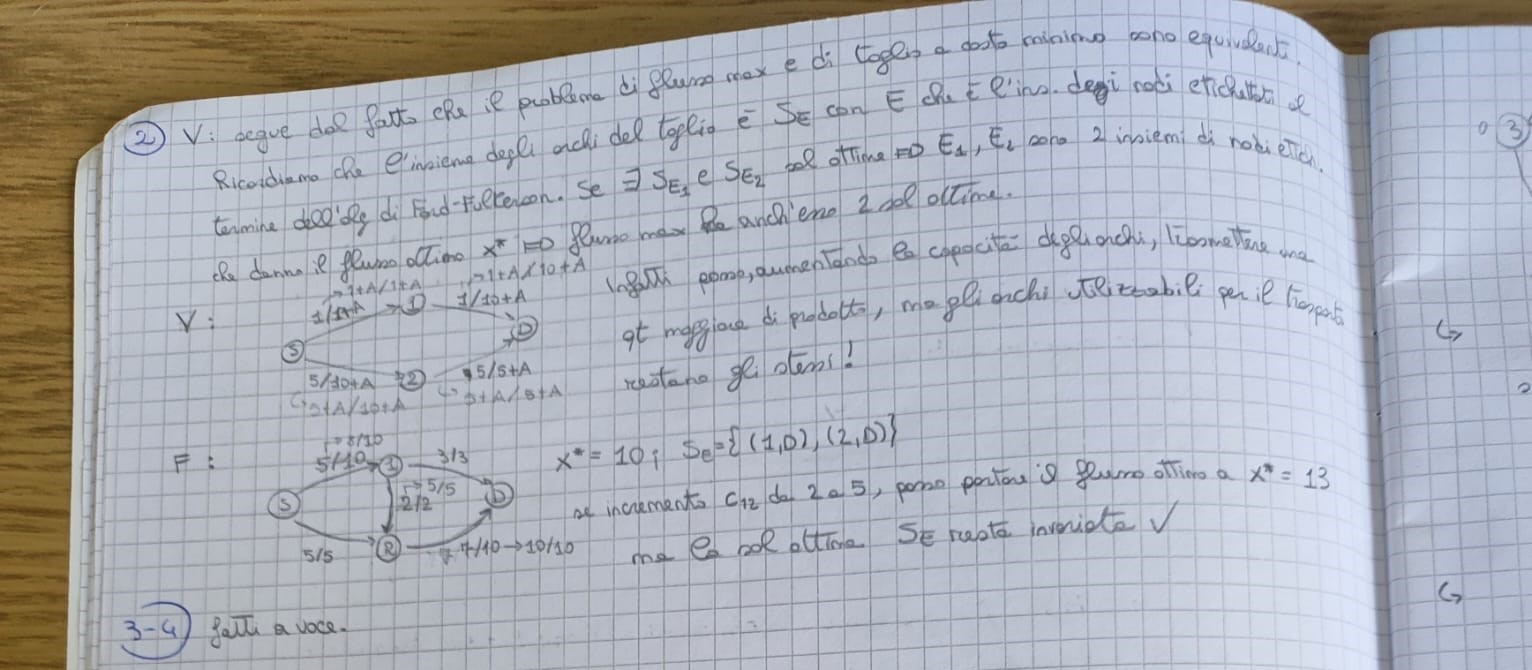 2 V: segue dal fatto che il problema di flusso max e di taglio a costo minimo sono equivalenti.
Ricordiamo che l'insieme degli archi del taglio è SE con E che è l'ins. degi nodi etichettati al
termine dell'alg di Ford-Fulkerson. Se ∃ SE1 e SE2 sol ottime => E1, E2 sono 2 insiemi di nodi etich.
che danno il flusso ottimo x* => flusso max ha anch'esso 2 sol ottime.
V:
→1+A/1+A
→1+A/10+A
1/1+A
1
1/10+A
S
D
5/10+A
2
5/5+A
↳5+A/10+A
↳5+A/5+A
Infatti posso, aumentando la capacità degli archi, trasmettere una
qt maggiore di prodotto, ma gli archi utilizzabili per il trasporto
restano gli stessi!
F:
→8/10
5/10
1
3/3
→5/5
2/2
S
D
5/5
2
7/10→10/10
x* = 10; Se={(1,D),(2,D)}
se incremento C12 da 2 a 5, posso portare il flusso ottimo a x* = 13
ma la sol ottima SE resta invariata √
3-4 fatti a voce.
3
↳
↳